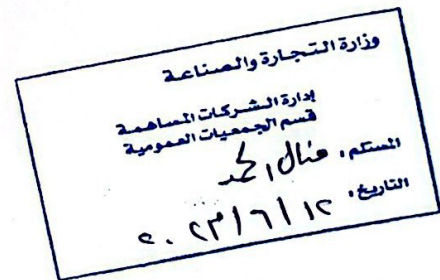 وزارة التجارة والصناعة
إدارة الشركات المساهمة
قسم الجمعيات العمومية
المستلم، منال الحمد
التاريخ، ٢٠٢٣/٦/١٢